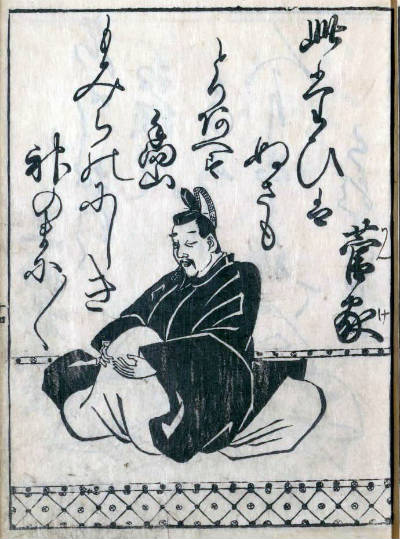 菅家
かんけ
此たひは
ぬさも
とりあへす
手向山
もみちのにしき
神のまに〱